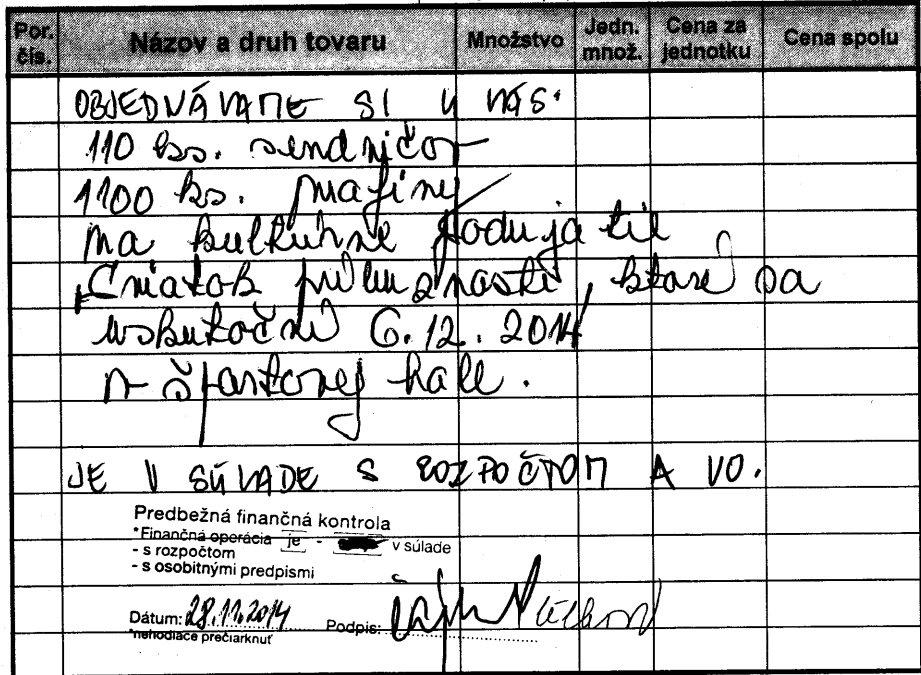 Por. čís. Názov a druh tovaru Množstvo Jedn. množ. Cena za jednotku Cena spolu
OBJEDNÁVAME SI U VÁS.
110 ks. sendvičov
1100 ks. mafiny
na kultúrne podujatie
"Sviatok príbuznosti, ktoré sa
uskutoční 6.12.2014
v športovej hale.
JE V SÚLADE S ROZPOČTOM A VO.
Predbežná finančná kontrola
*Finančná operácia je - v súlade
- s rozpočtom
- s osobitnými predpismi
Dátum: 28.11.2014 Podpis:
*nehodiace prečiarknuť